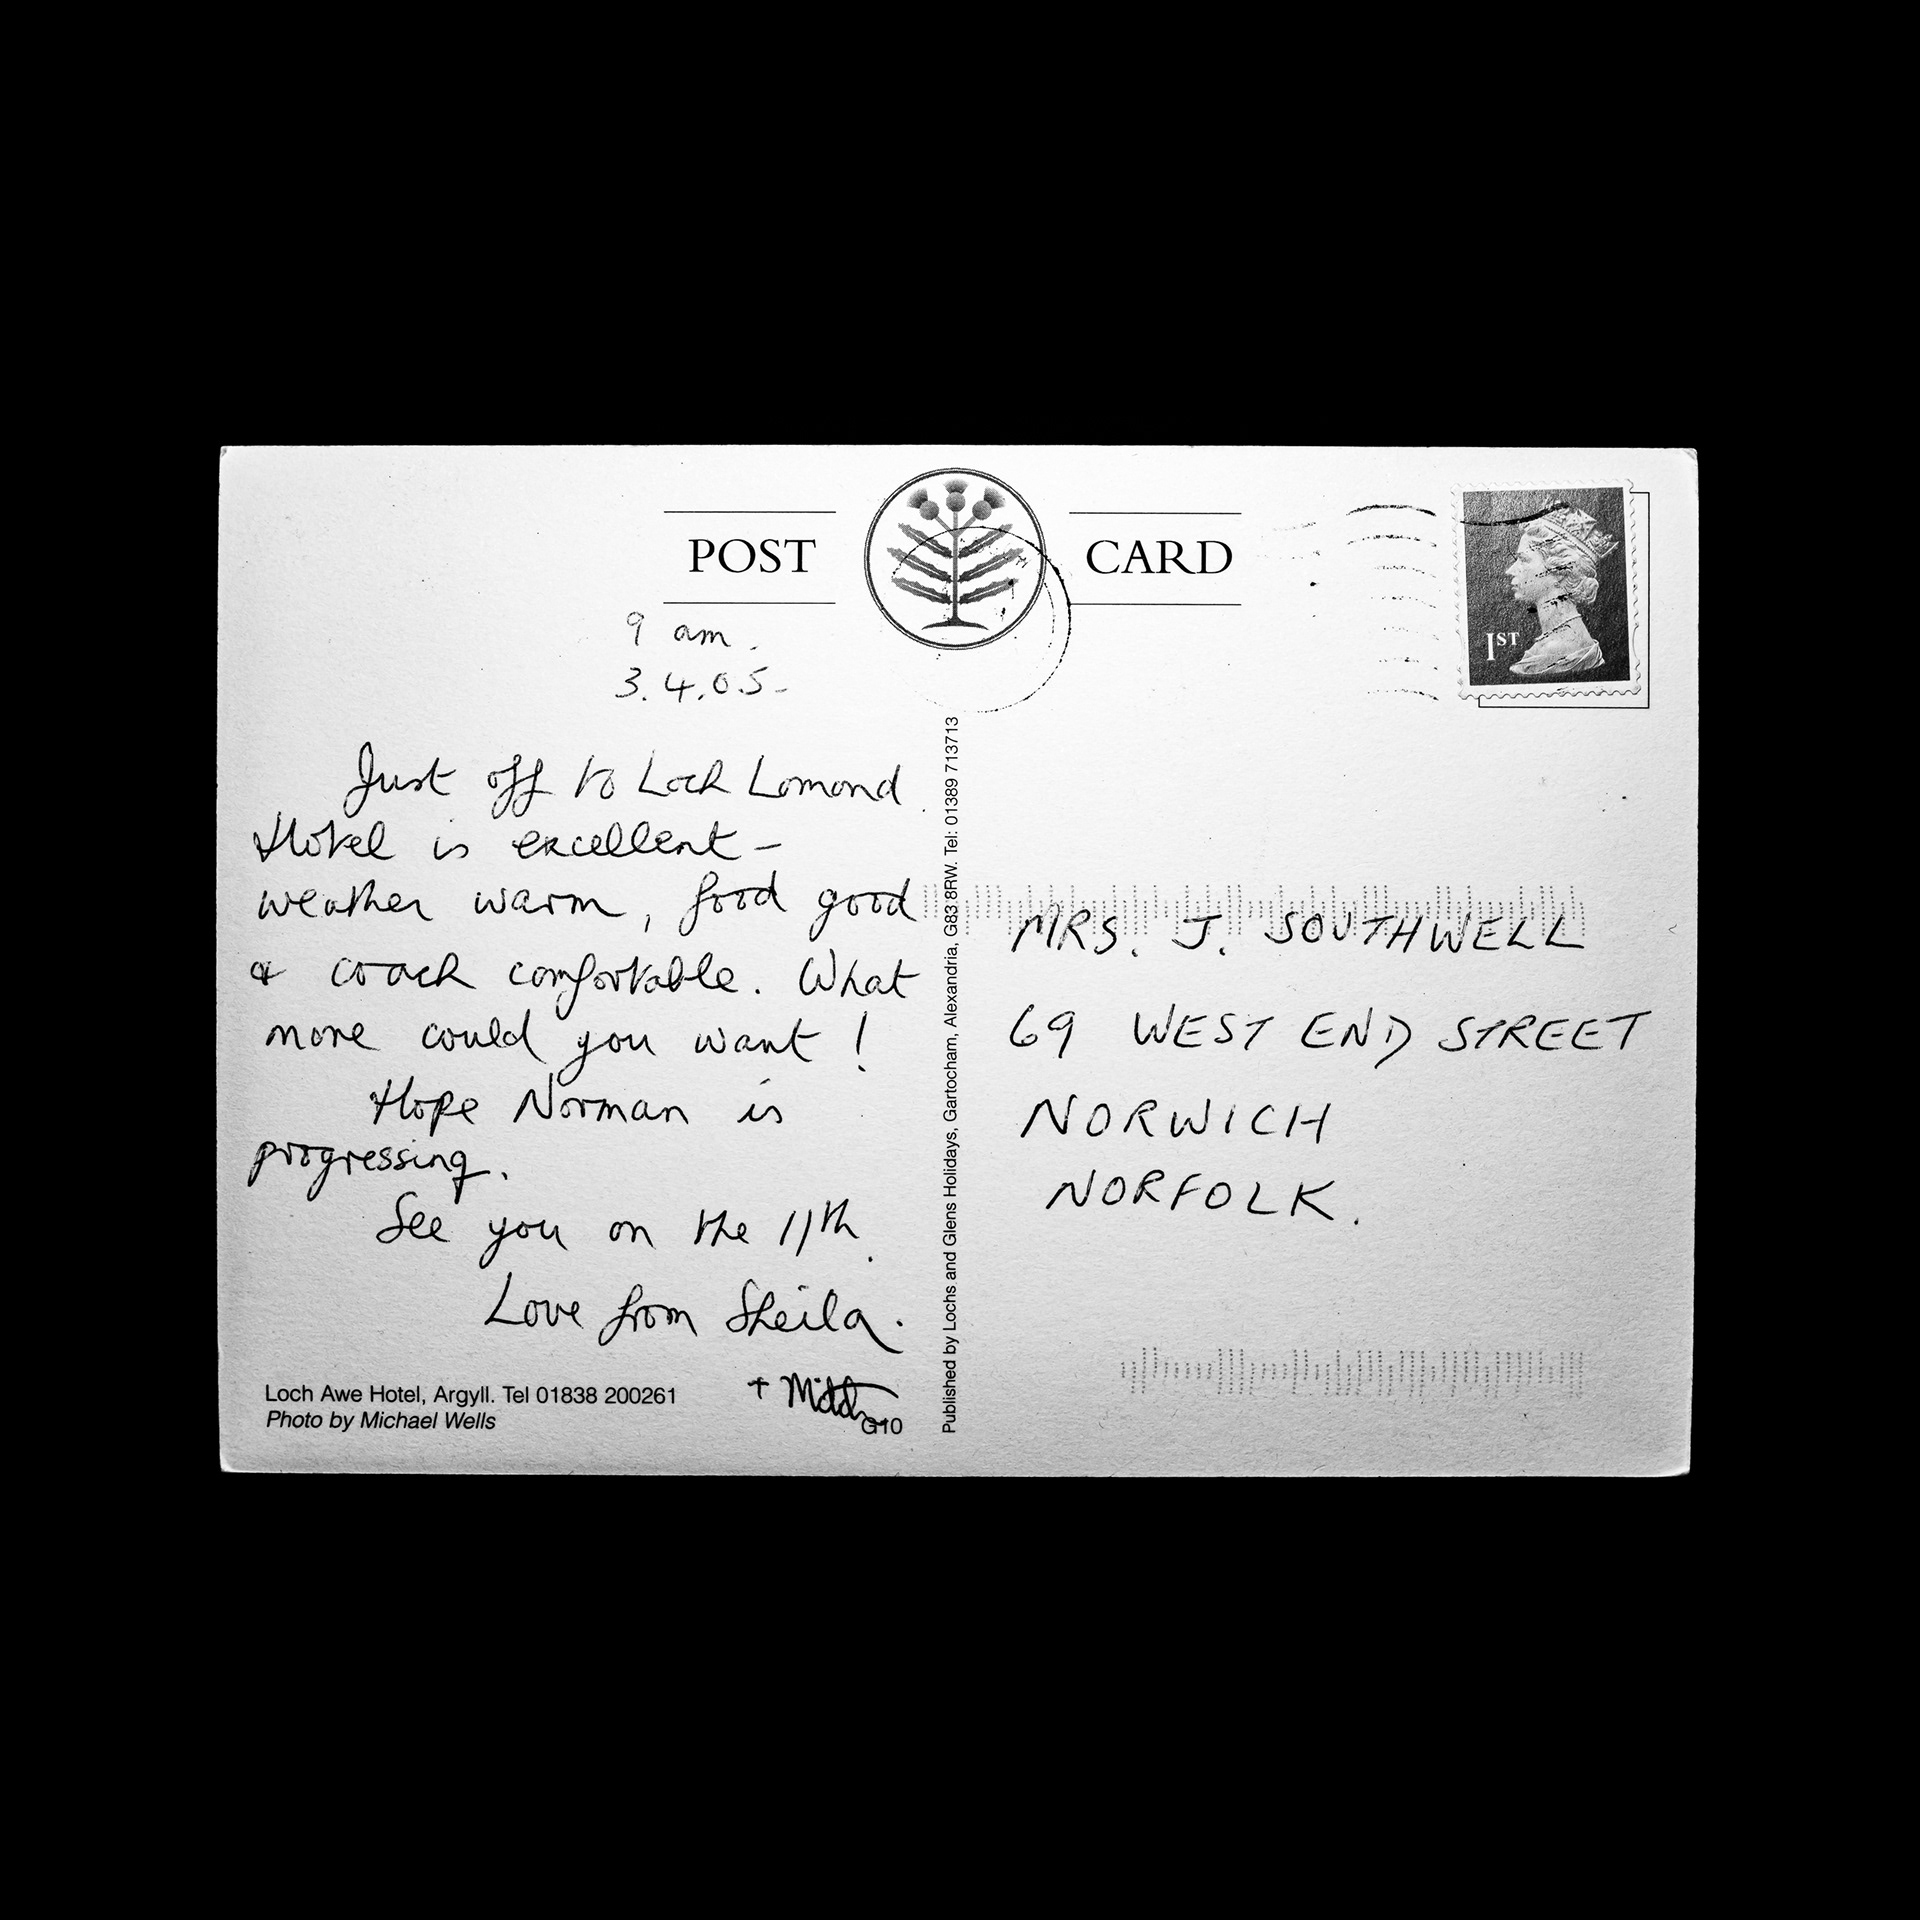 POST CARD
1ST
9 am.
3.4.05-
Just off to Loch Lomond
Hotel is excellent -
weather warm, food good
& coach comfortable. What
more could you want!
Hope Norman is
progressing.
See you on the 11th.
Love from Sheila.
+ Mitch
Loch Awe Hotel, Argyll. Tel 01838 200261
Photo by Michael Wells
G10
Published by Lochs and Glens Holidays, Gartocham, Alexandria, G83 8RW. Tel: 01389 713713
MRS. J. SOUTHWELL
69 WEST END STREET
NORWICH
NORFOLK.